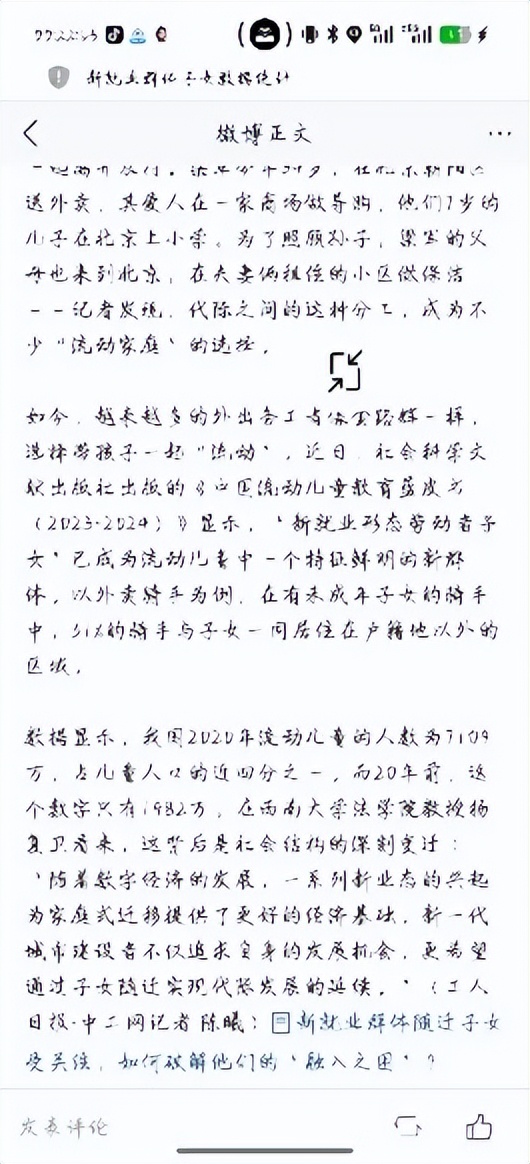 新就业群体子女数据统计
微博正文
送外卖，其爱人在一家商场做导购，他们7岁的
儿子在北京上小学。为了照顾孙子，梁军的父
母也来到北京，在夫妻俩租住的小区做保洁
——记者发现，代际之间的这种分工，成为不
少“流动家庭”的选择。
如今，越来越多的外出务工者
选择带孩子一起“流动”，近日，社会科学文
献出版社出版的《中国流动儿童教育蓝皮书
（2023-2024）》显示，“新就业形态劳动者子
女”已成为流动儿童中一个特征鲜明的新群
体，以外卖骑手为例，在有未成年子女的骑手
中，51%的骑手与子女一同居住在户籍地以外的
区域。
数据显示，我国2020年流动儿童的人数为7109
万，占儿童人口的近四分之一，而20年前，这
个数字只有1982万，在西南大学法学院教授杨
复卫看来，这背后是社会结构的深刻变迁：
“随着数字经济的发展，一系列新业态的兴起
为家庭式迁移提供了更好的经济基础，新一代
城市建设者不仅追求自身的发展机会，更希望
通过子女随迁实现代际发展的延续。”（工人
日报-中工网记者陈曦）新就业群体随迁子女
受关注，如何破解他们的“融入之困”？
发表评论